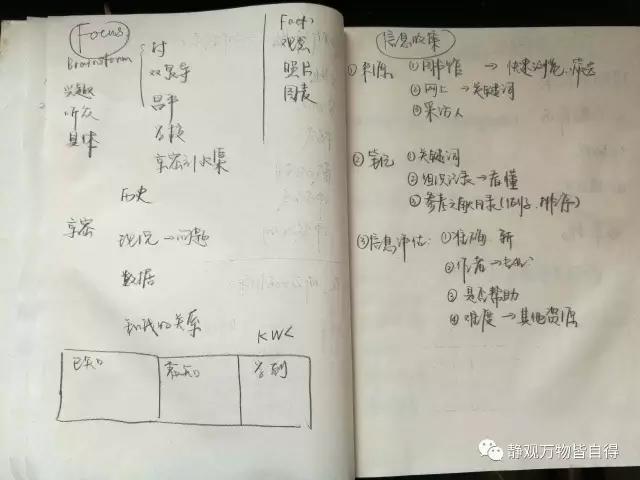 Focus
Brainstorm
兴趣
听众
具体
村
双导
昌平
京密引水渠
Fact
观点
照片
图表
历史
京密 现况→问题
数据
和我的关系
KWL
已知 需知 学到
信息收集
①来源: ①图书馆 → 快速浏览、筛选
②网上 → 关键词
③采访人
②笔记 ①关键词
②组织记录→看懂
③参考文献目录(做好、排序)
③信息评估: ①准确、新
②作者→专业
③是否帮助
④难度→其他资源
静观万物皆自得